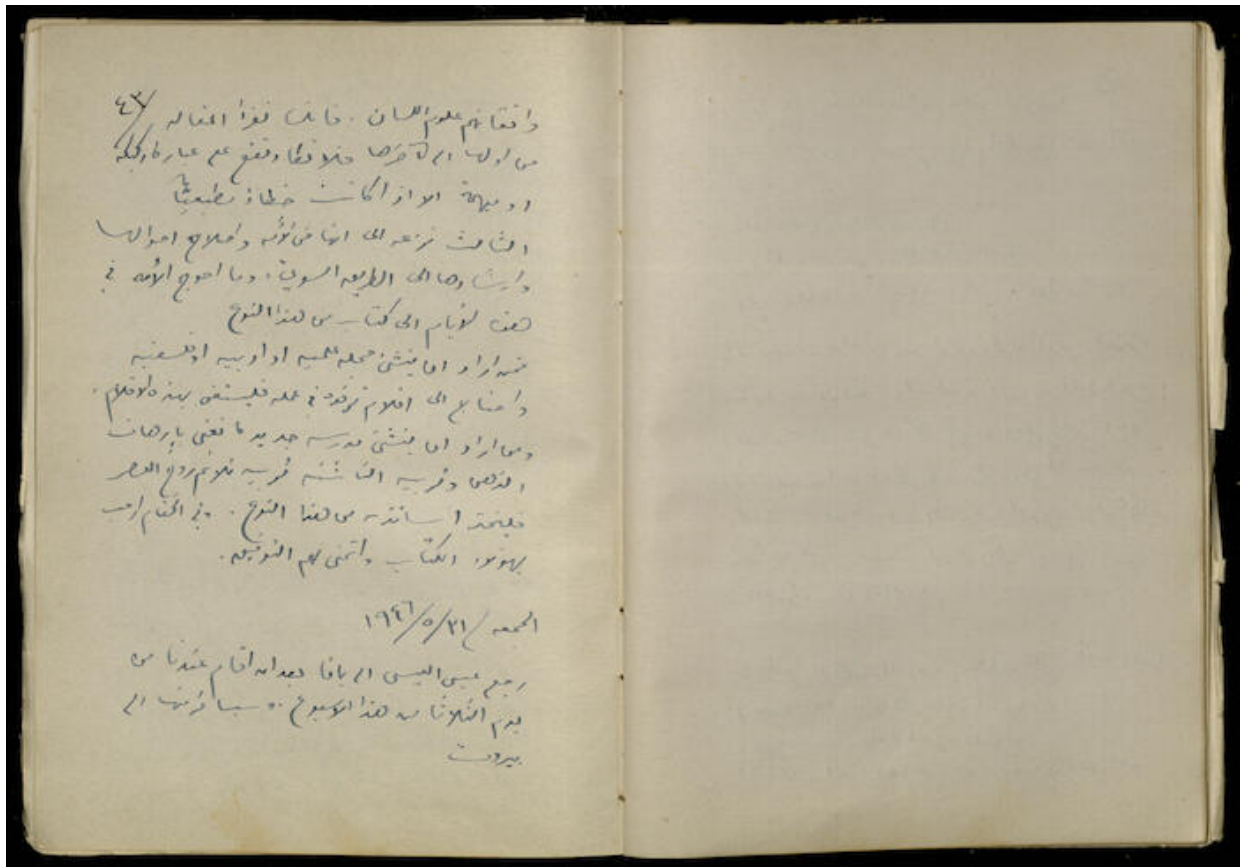 ٤٣/
واتقانهم علوم اللسان . فانك تقرأ المقاله
من اولها الى آخرها فلا تكاد تقع على عبارة ركيكة
او مبهمة الا اذا كانت خطأ مطبعيًّا
الثالث نزعه الى انهاض الأمه واصلاح احوالها
وارشادها الى الطريقه السوية . وما احوج الأمه في
هذه الأيام الى كتاب من هذا النوع
فمن اراد ان ينشئ مجله علميه او ادبيه او فلسفيه
واحتاج الى اقلام ترفده في عمله فليستعن بهذه الاقلام .
ومن اراد ان ينشئ مدرسه جديدة تعنى بإرهاف
الذهن وتربيه الناشئه تربيه تلائم روح العصر
فليتخذ اساتذته من هذا النوع . وفي الختام ارحب
بهؤلاء الكتّاب واتمنى لهم التوفيق .
الجمعه / ٣١/٥/١٩٤٦
رجع عيسى العيسى الى يافا بعد ان اقام عندنا من
يوم الثلاثا من هذا الاسبوع .. سيسافر منها الى
بيروت